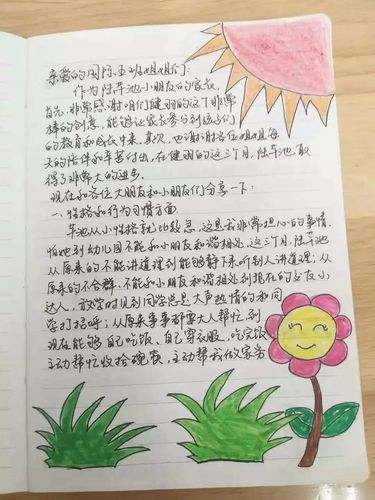 亲爱的国际五班姐姐们：
作为陆车池小朋友的家长，
首先，非常感谢咱们健羽的这个非常
棒的创意，能够让家长参与到孩子们
的教育和成长中来。其次，也谢谢各位姐姐每
天的陪伴和辛苦付出，在健羽的这三个月，陆车池取
得了非常大的进步。
现在和各位大朋友和小朋友们分享一下：
一、性格和行为习惯方面
车池从小性格就比较急，这是我非常担心的事情，
怕她到幼儿园不能和小朋友和谐相处，这三个月，陆车池
从原来的不能讲道理到能够静下来听别人讲道理；从
原来的不合群、不能和小朋友和谐相处到现在的交友小
达人，放学时见到同学总是大声热情的和同
学打招呼；从原来事事都要大人帮忙，到
现在能够自己吃饭，自己穿衣服，吃完饭
主动帮忙收拾碗筷，主动帮我做家务